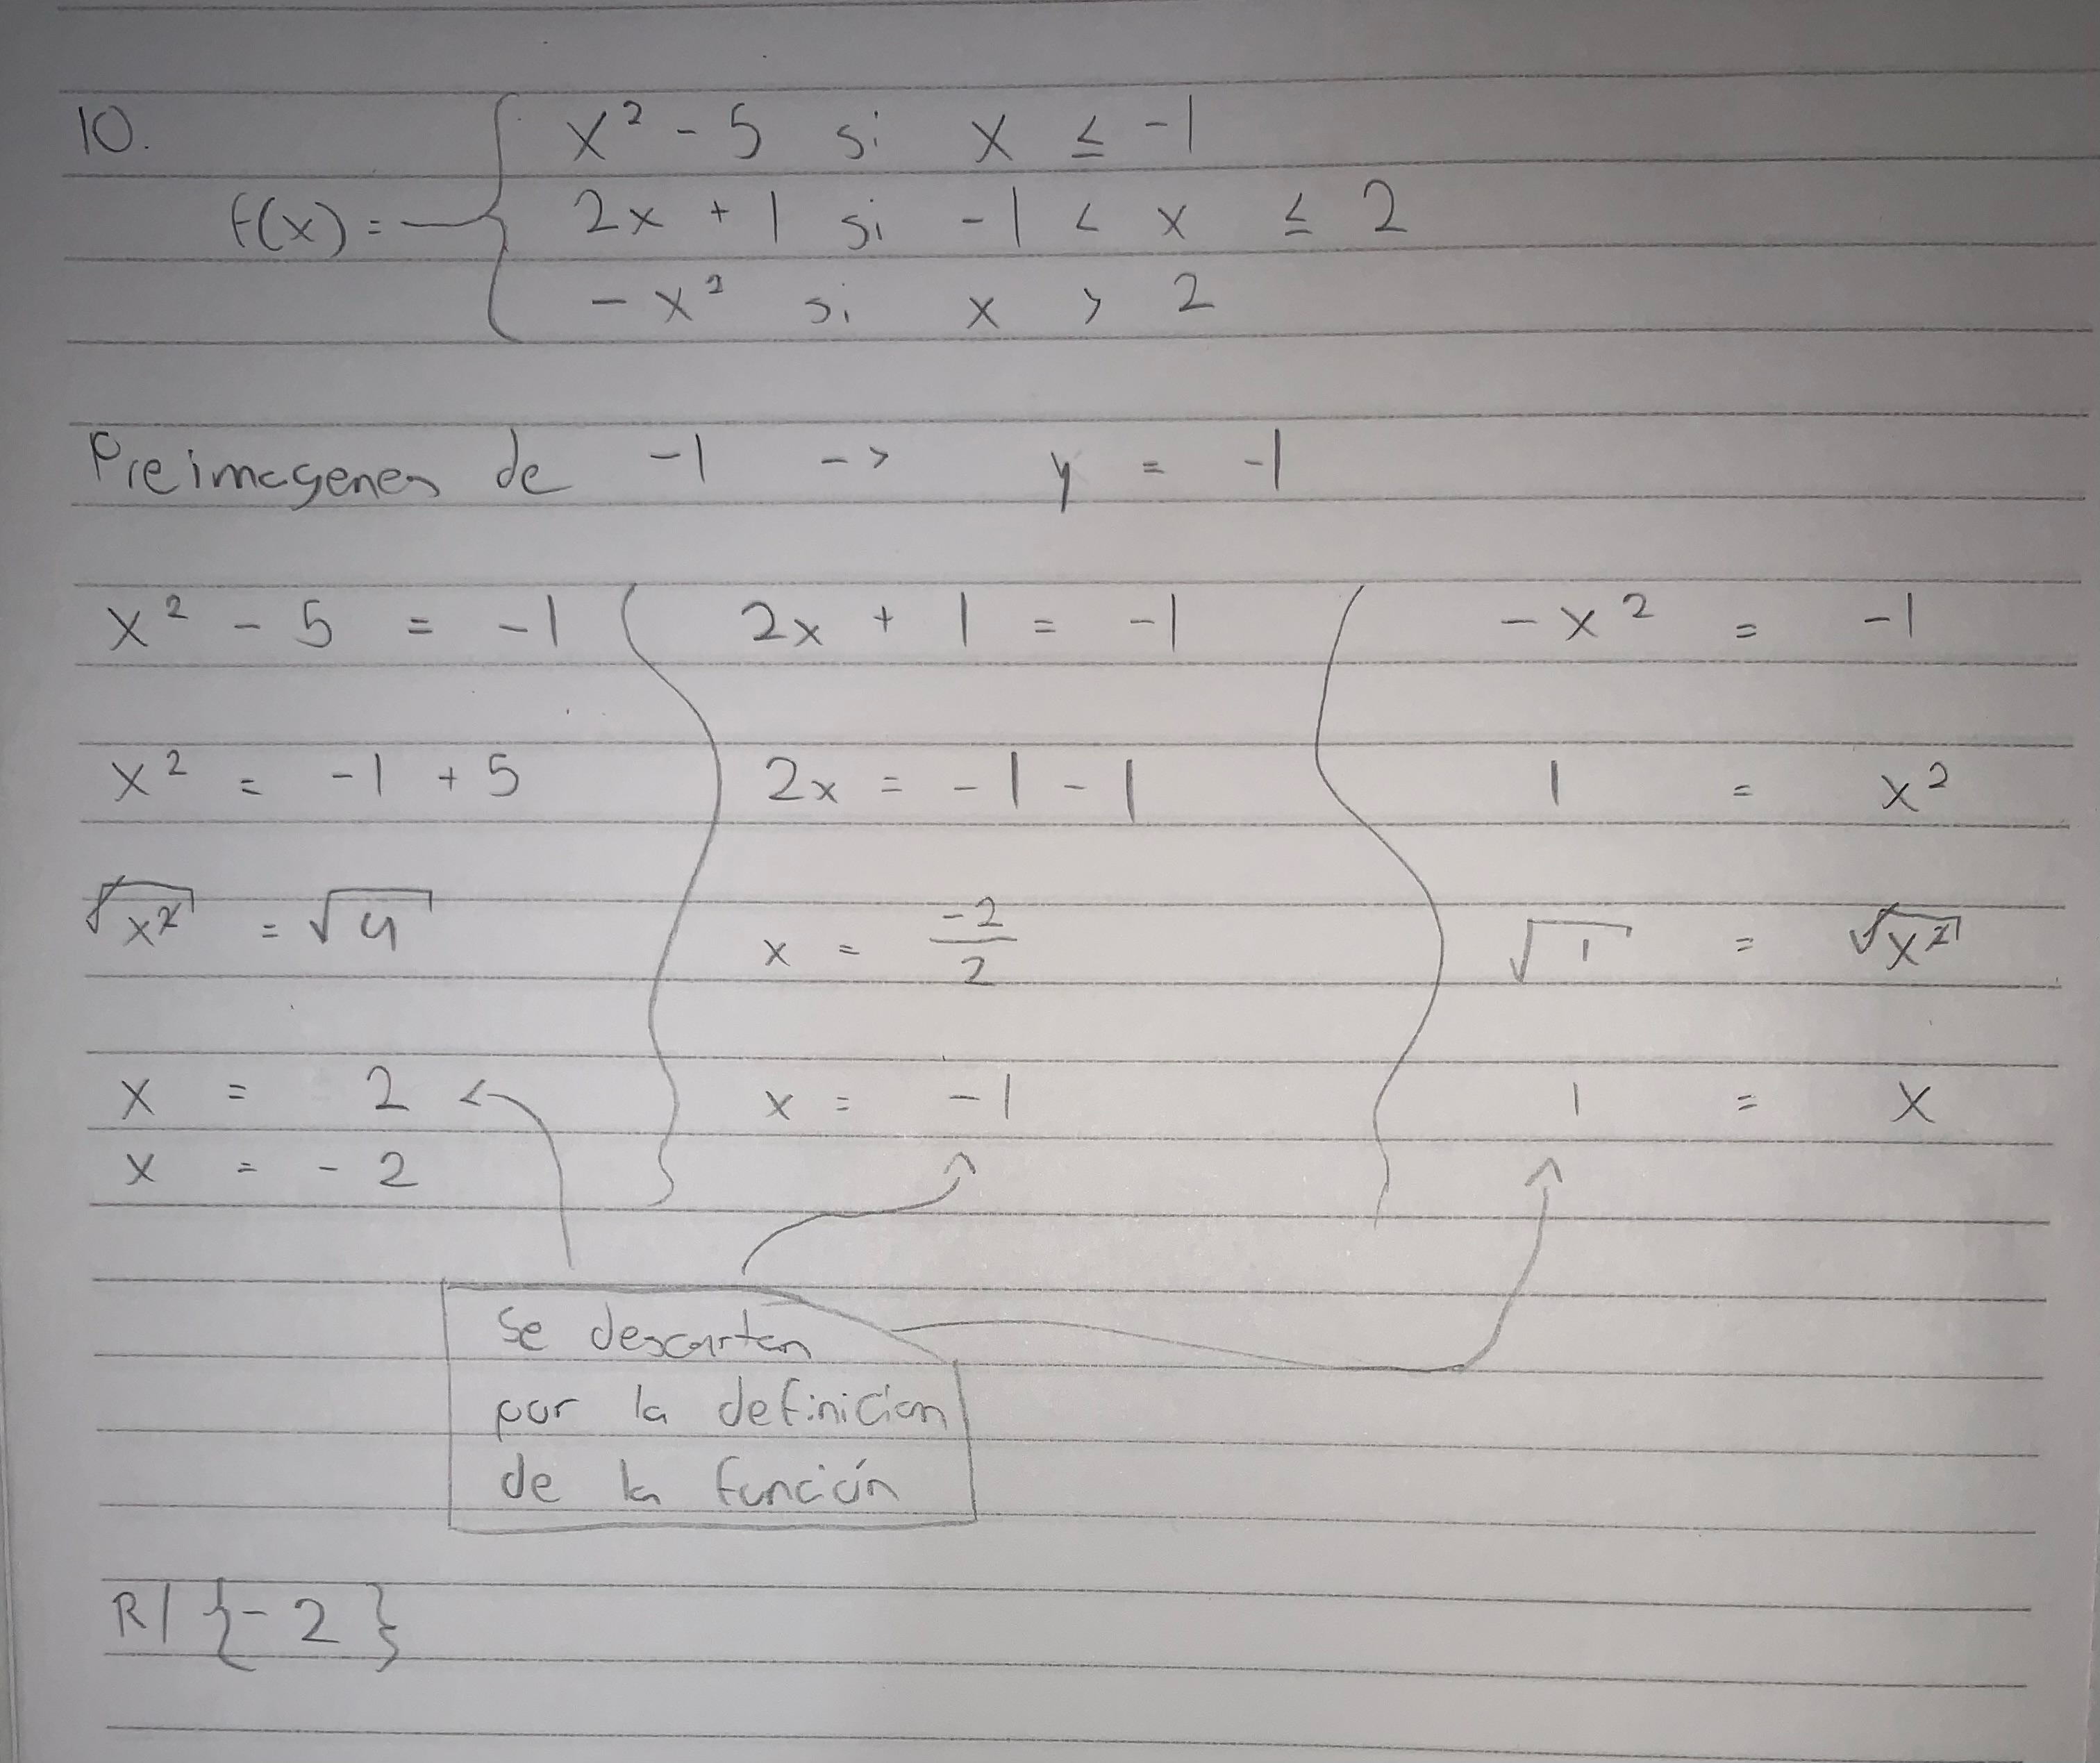 10.
x² - 5 si x ≤ -1
f(x) = { 2x + 1 si -1 < x ≤ 2
- x² si x > 2
Preimagenes de -1 -> y = -1
x² - 5 = -1 2x + 1 = -1 - x² = -1
x² = -1 + 5 2x = -1 - 1 1 = x²
√x² = √4 x = -2/2 √1 = √x²
x = 2 x = -1 1 = x
x = -2
Se descartan
por la definicion
de la función
R/ {-2}